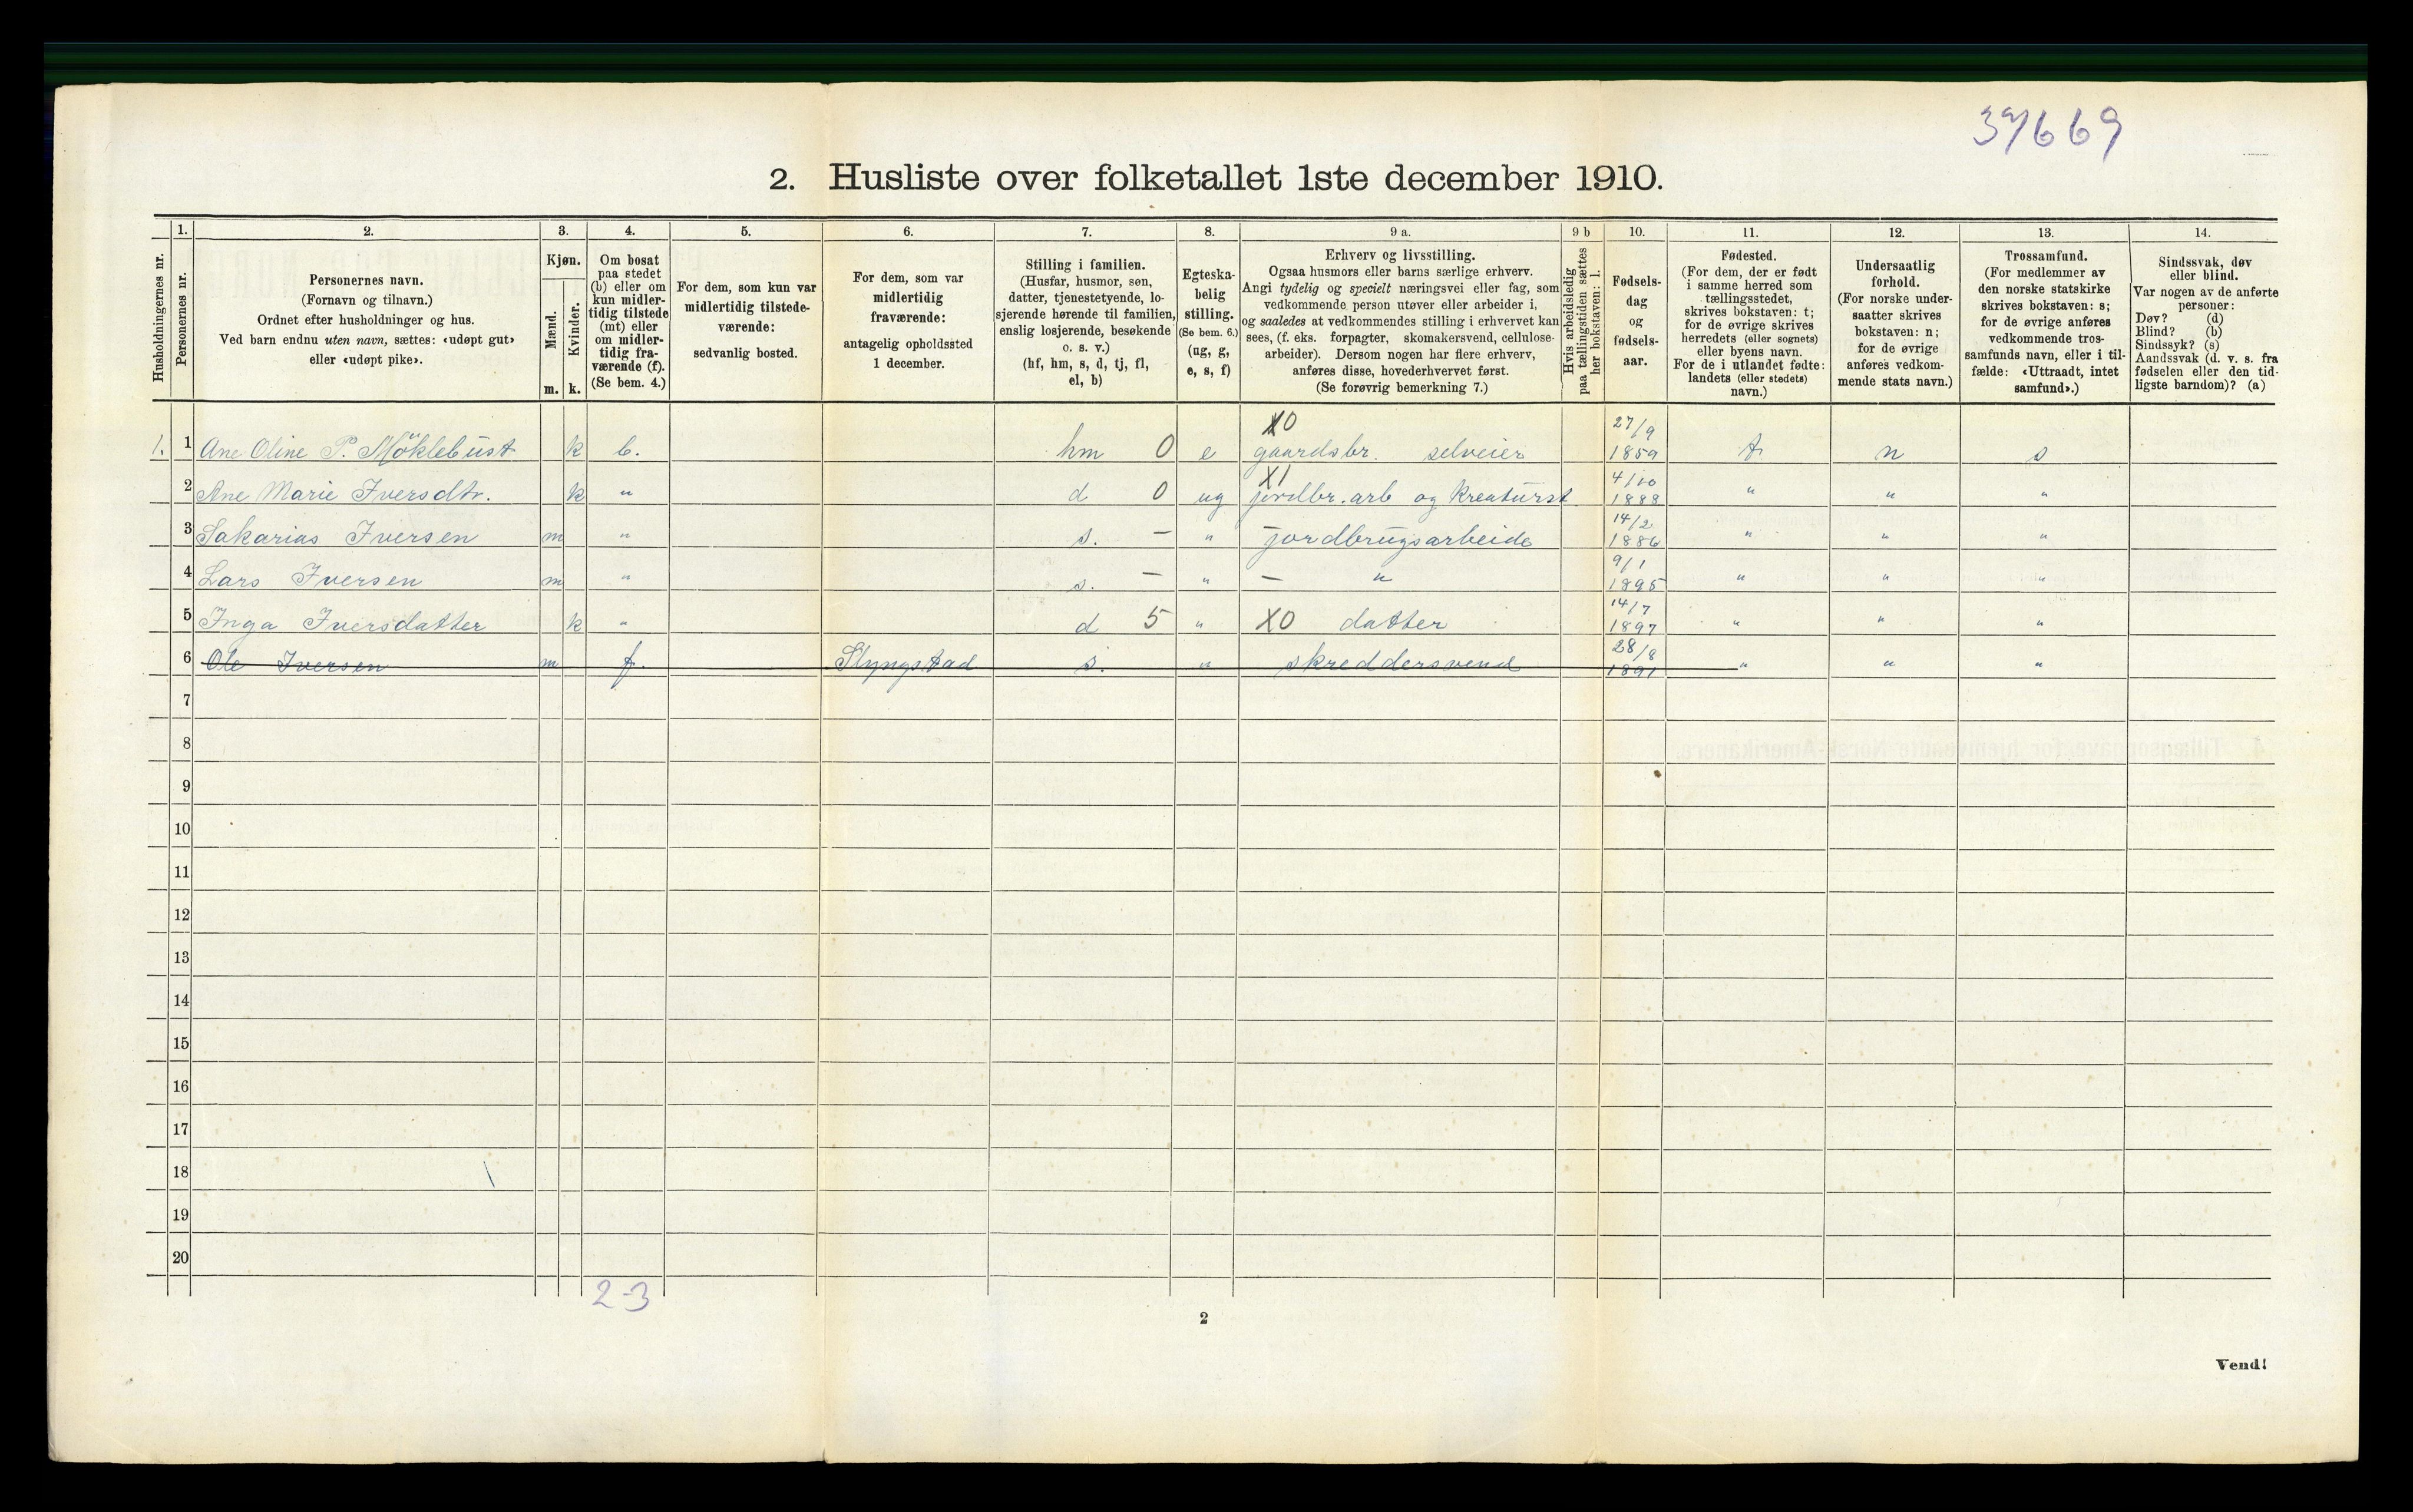 39669
2. Husliste over folketallet 1ste december 1910.
Husholdningernes nr.
1.
Personernes nr.
2.
Personernes navn.
(Fornavn og tilnavn.)
Ordnet efter husholdninger og hus.
Ved barn endnu uten navn, sættes: «udøpt gut»
eller «udøpt pike».
3.
Kjøn.
Mænd.
Kvinder.
m. k.
4.
Om bosat
paa stedet
(b) eller om
kun midler-
tidig tilstede
(mt) eller
om midler-
tidig fra-
værende (f).
(Se bem. 4.)
5.
For dem, som kun var
midlertidig tilstede-
værende:
sedvanlig bosted.
6.
For dem, som var
midlertidig
fraværende:
antagelig opholdssted
1 december.
7.
Stilling i familien.
(Husfar, husmor, søn,
datter, tjenestetyende, lo-
sjerende hørende til familien,
enslig losjerende, besøkende
o. s. v.)
(hf, hm, s, d, tj, fl,
el, b)
8.
Egteska-
belig
stilling.
(Se bem. 6.)
(ug, g,
e, s, f)
9 a.
Erhverv og livsstilling.
Ogsaa husmors eller barns særlige erhverv.
Angi tydelig og specielt næringsvei eller fag, som
vedkommende person utøver eller arbeider i,
og saaledes at vedkommendes stilling i erhvervet kan
sees, (f. eks. forpagter, skomakersvend, cellulose-
arbeider). Dersom nogen har flere erhverv,
anføres disse, hovederhvervet først.
(Se forøvrig bemerkning 7.)
9 b
Hvis arbeidsledig
paa tællingstiden sættes
her bokstaven: l.
10.
Fødsels-
dag
og
fødsels-
aar.
11.
Fødested.
(For dem, der er født
i samme herred som
tællingsstedet,
skrives bokstaven: t;
for de øvrige skrives
herredets (eller sognets)
eller byens navn.
For de i utlandet fødte:
landets (eller stedets)
navn.)
12.
Undersaatlig
forhold.
(For norske under-
saatter skrives
bokstaven: n;
for de øvrige
anføres vedkom-
mende stats navn.)
13.
Trossamfund.
(For medlemmer av
den norske statskirke
skrives bokstaven: s;
for de øvrige anføres
vedkommende tros-
samfunds navn, eller i til-
fælde: «Uttraadt, intet
samfund».)
14.
Sindssvak, døv
eller blind.
Var nogen av de anførte
personer:
Døv? (d)
Blind? (b)
Sindssyk? (s)
Aandssvak (d. v. s. fra
fødselen eller den tid-
ligste barndom)? (a)
X0 27/9
1. 1 Ane Oline P. Möklebust k b. hm 0 e gaardsbr. selveier 1859 t n s
X1 4/10
2 Ane Marie Iversdtr. k " d 0 ug jordbr. arb og Kreaturst 1888 " " "
14/2
3 Sakarias Iversen m " s. - " jordbrugsarbeide 1886 " " "
9/1
4 Lars Iversen m " s. - " - " 1895 " " "
14/7
5 Inga Iversdatter k " d 5 " X0 datter 1897 " " "
28/8
6 Ole Iversen m f. Slyngstad s. " skreddersvend 1891 " " "
7
8
9
10
11
12
13
14
15
16
17
18
19
20
2-3
2
Vend!